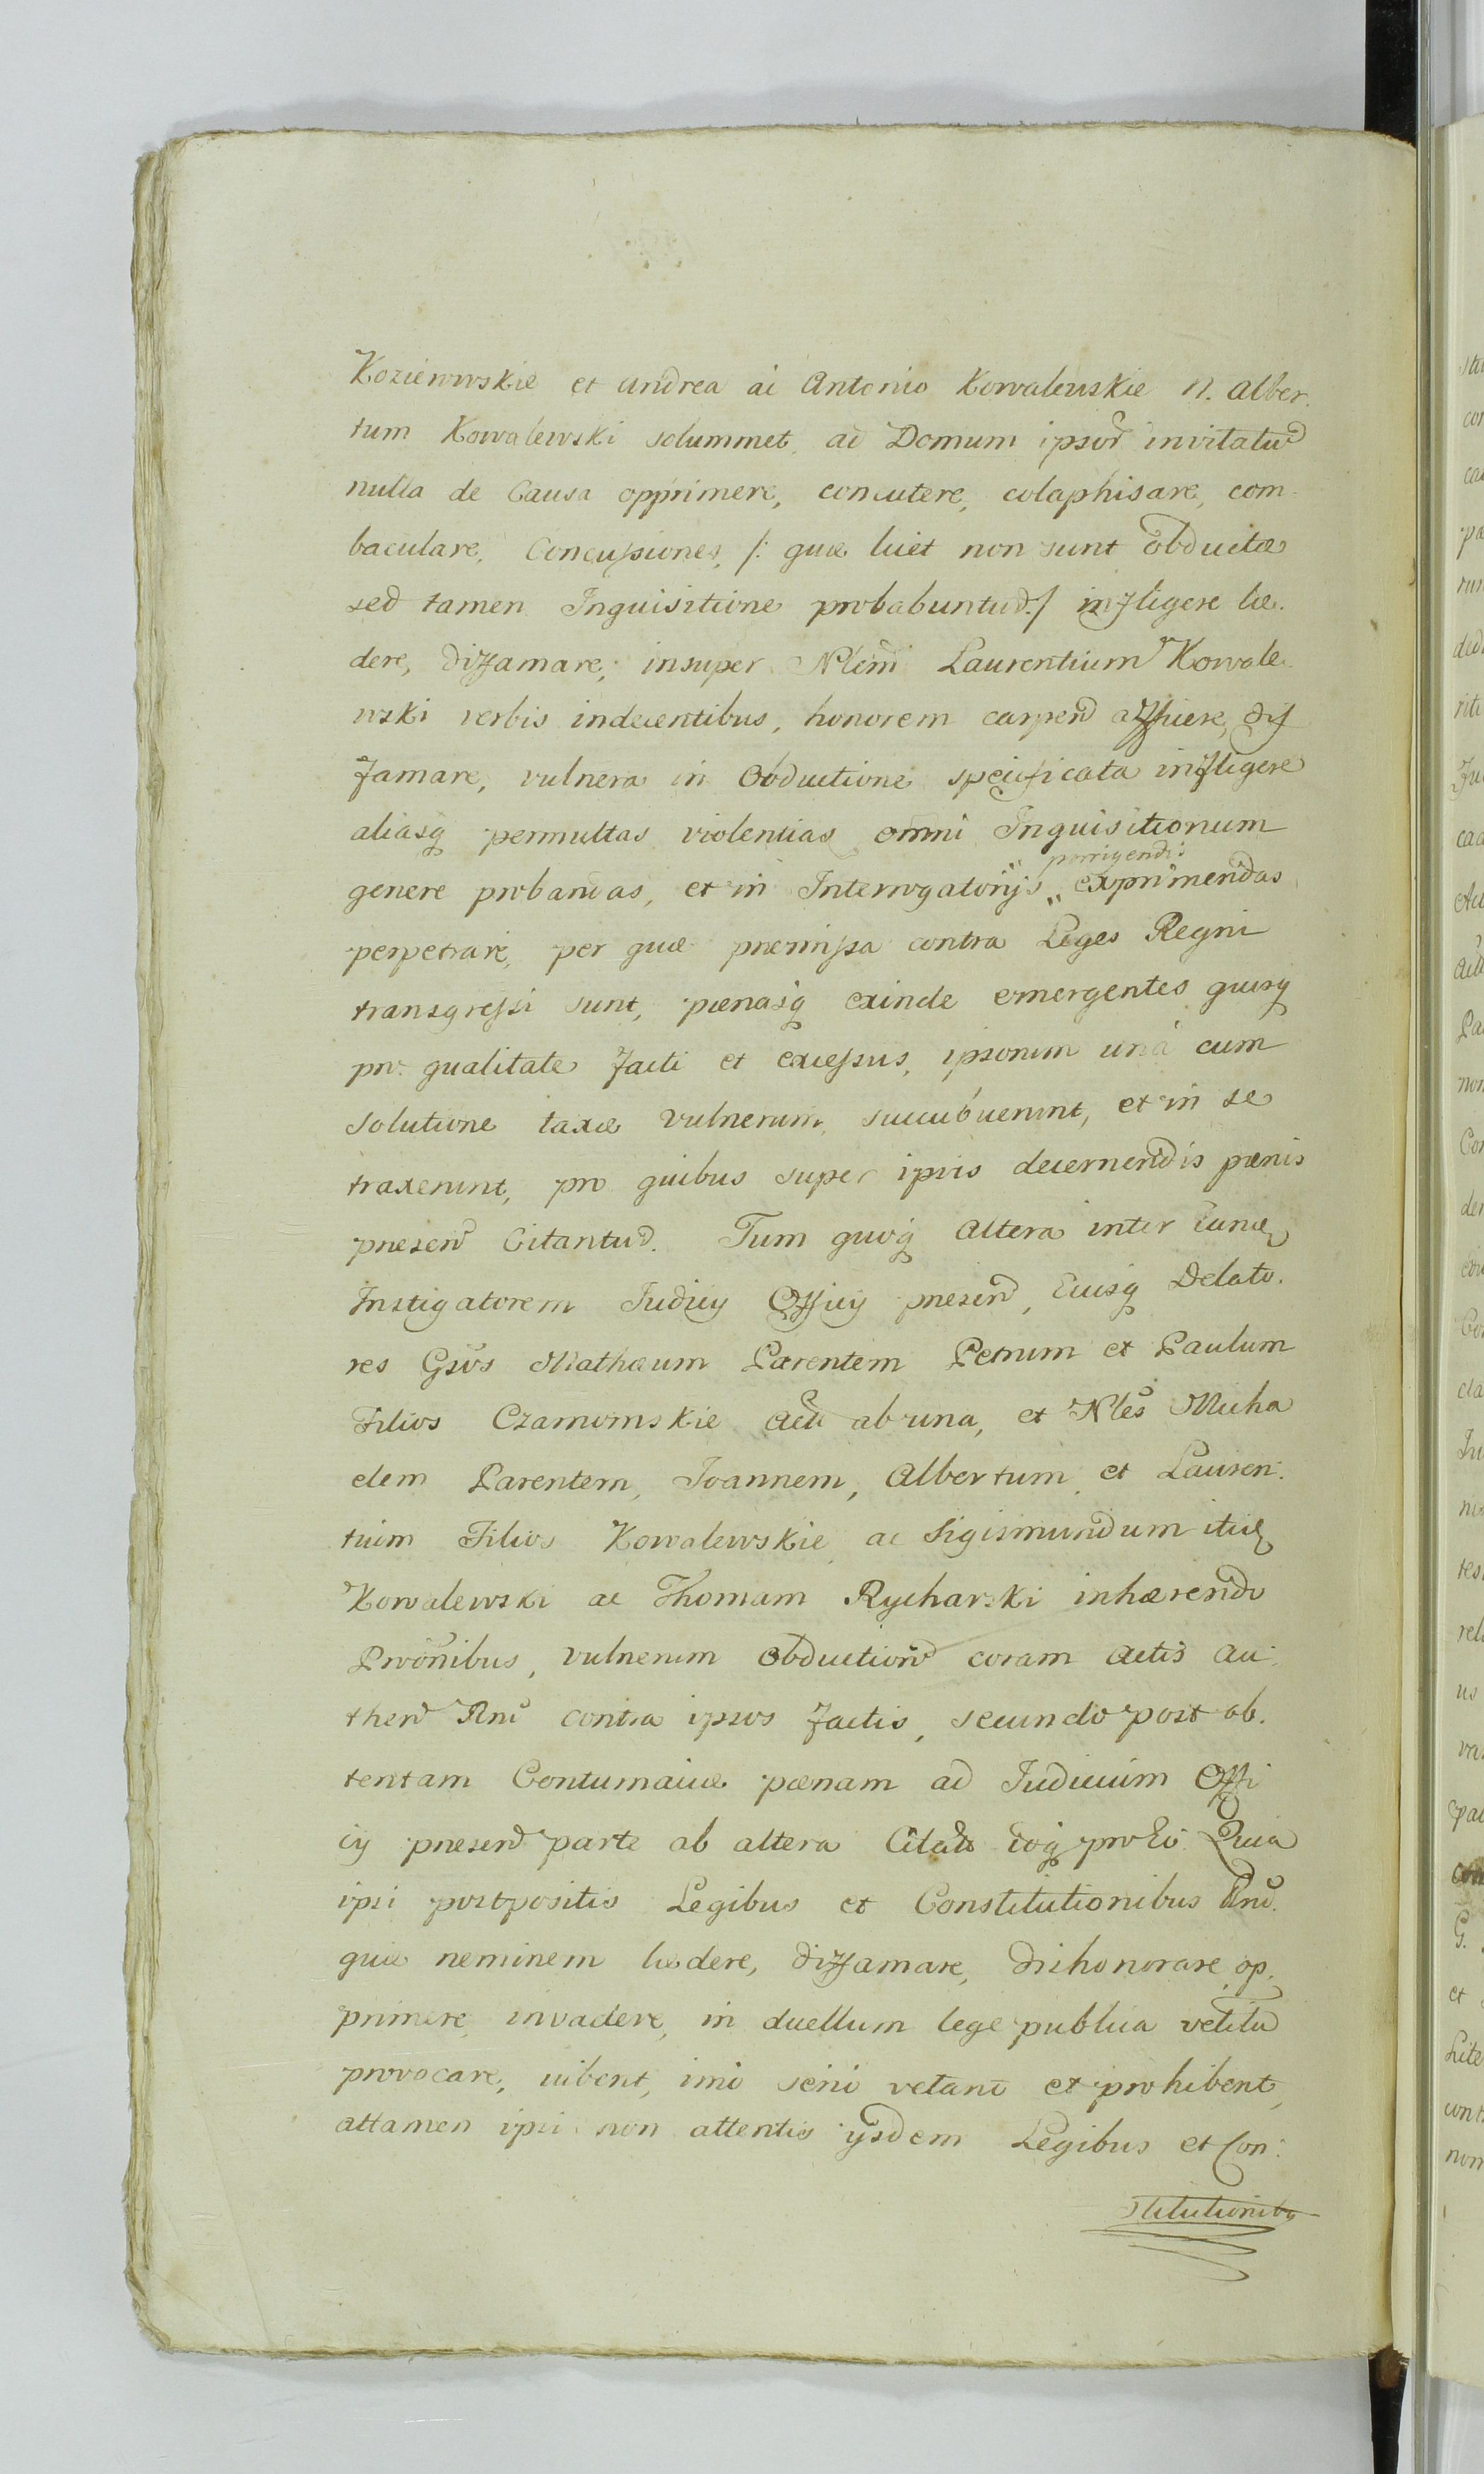 Koziewwskie et Andrea ac Antonio Kowalewskie N. Alber.
tum Kowalewski solummet, ad Domum ipsor̃ invitatũ
nulla de Causa opprimere, concutere, colaphisare, com-
baculare, Concussiones, /: quæ licet non sunt obductæ
sed tamen Inquisitione probabuntur :/ infligere læ.
dere, diffamare, insuper Nlem̃ Laurentium Kowale-
wski verbis indecentibus, honorem carpen̄ afficere, dif
famare, vulnera in Obductione specificata infligere
aliasq̃ permultas violentias omni Inquisitionum
genere probandas, et in Interrogatorijs „ porrigendis exprimendas
perpetrare, per quæ præmissa contra Leges Regni
transgressi sunt, pænasq̃ exinde emergentes quasq̃
pro qualitate facti et excessus, ipsorum unà cum
solutione taxæ vulnerum, succubuerunt, et in se
traxerunt, pro quibus super ipsis decernendis pænis
præsen̄ Citantur. Tum quoq̃ Altera inter eund̃
Instigatorem Judicij Officij præsen̄, Eiusq̃ Delato.
res Gsos̃ Mathæum Parentem Petrum et Paulum
Filios Czamomskie Act̃ ab una, et Nles̃ Micha
elem Parentem, Joannem, Albertum, et Lauren.
tium Filios Kowalewskie, ac Sigismundum itid̃
Kowalewski ac Thomam Rycharski inhærendo
Pro͠nibus, vulnerum Obduction̄ coram Actis Au-
then̄ Rni͠ contra ipsos factis, secundo post ob.
tentam Contumaciæ pænam ad Judicium Offi
cij præsen̄ parte ab altera Citat̃ Eoq̃ pro Eo Quia
ipsi postpositis Legibus et Constitutionibus Rni͠.
quæ neminem lædere, diffamare, dishonorare, op.
primere, invadere, in duellum lege publica vetitũ
provocare, iubent, imò seriò vetant et prohibent,
attamen ipsi non attentis ijsdem Legibus et Con:
stitutionibq